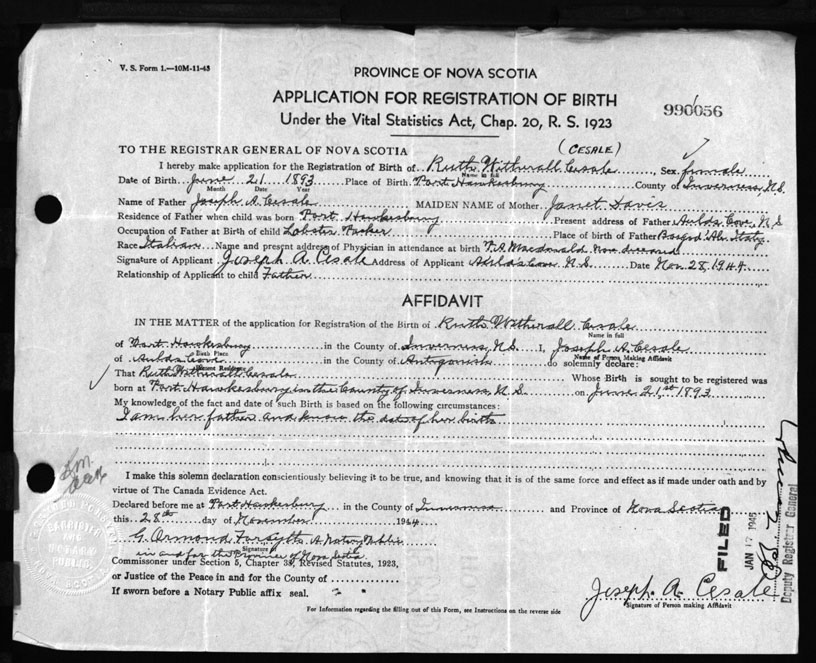 V. S. Form 1.—10M-11-43
PROVINCE OF NOVA SCOTIA
APPLICATION FOR REGISTRATION OF BIRTH
990056
Under the Vital Statistics Act, Chap. 20, R. S. 1923
(CESALE)
TO THE REGISTRAR GENERAL OF NOVA SCOTIA
I hereby make application for the Registration of Birth of Ruth Witherall Cesale, Sex female
Name in full
Date of Birth June 21 1893 Place of Birth Port Hawkesbury County of Inverness, N.S.
Month Date Year
Name of Father Joseph A. Cesale MAIDEN NAME of Mother Janet Davis
Residence of Father when child was born Port Hawkesbury Present address of Father Aulds Cove, N S
Occupation of Father at Birth of child Lobster Packer Place of birth of Father Italy
Race Italian Name and present address of Physician in attendance at birth Macdonald Now deceased
Signature of Applicant Joseph A. Cesale Address of Applicant Aulds Cove N.S. Date Nov. 28, 1944
Relationship of Applicant to child Father
AFFIDAVIT
IN THE MATTER of the application for Registration of the Birth of Ruth Witherall Cesale
Name in full
of Port Hawkesbury in the County of Inverness, N.S. I, Joseph A. Cesale
Birth Place Name of Person Making Affidavit
of Aulds Cove in the County of Antigonish do solemnly declare:
Present Residence
That Ruth Witherall Cesale Whose Birth is sought to be registered was
born at Port Hawkesbury in the County of Inverness, N.S. on June 21st 1893
My knowledge of the fact and date of such Birth is based on the following circumstances:
I am her father and know the date of her birth
I make this solemn declaration conscientiously believing it to be true, and knowing that it is of the same force and effect as if made under oath and by
virtue of The Canada Evidence Act.
Declared before me at Port Hawkesbury in the County of Inverness and Province of Nova Scotia
this 28th day of November 1944
G. Ormond Forsyth A Notary Public
Signature of
in and for the Province of Nova Scotia
Commissioner under Section 5, Chapter 38, Revised Statutes, 1923,
or Justice of the Peace in and for the County of
If sworn before a Notary Public affix seal.
Joseph A. Cesale
Signature of Person making Affidavit
For Information regarding the filling out of this Form, see Instructions on the reverse side
FILED
JAN 17 1945
Deputy Registrar General